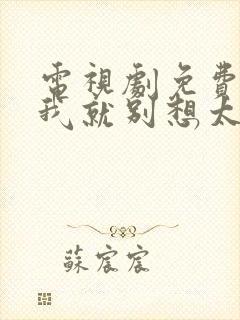 電視劇免費
我就別想太
蘇宸宸